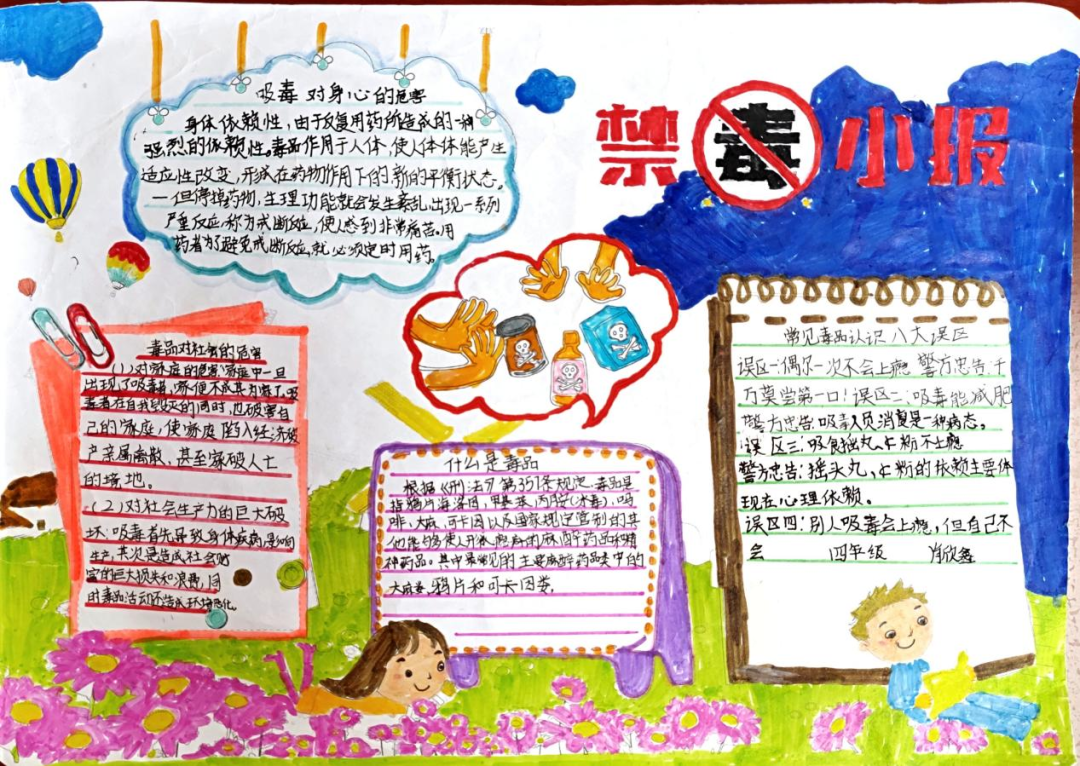 禁毒小报
吸毒对身心的危害
身体依赖性,由于反复用药所造成的一种
强烈的依赖性。毒品作用于人体,使人体体能产生
适应性改变,形成在药物作用下的新的平衡状态。
一但停掉药物,生理功能就会发生紊乱,出现一系列
严重反应,称为戒断反应,使人感到非常痛苦。用
药者为了避免戒断反应,就必须定时用药。
毒品对社会的危害
(1)对家庭的危害:家庭中一旦
出现了吸毒者,家便不成其为家了。吸
毒者在自我毁灭的同时,也破害自
己的家庭,使家庭陷入经济破
产、亲属离散、甚至家破人亡
的境地。
(2)对社会生产力的巨大破
坏:吸毒首先导致身体疾病,影响
生产,其次是造成社会财
富的巨大损失和浪费,同
时毒品活动还造成环境恶化。
什么是毒品
根据《刑法》第357条规定,毒品是
指鸦片、海洛因、甲基苯丙胺(冰毒)、吗
啡、大麻、可卡因以及国家规定管制的其
他能够使人形成瘾癖的麻醉药品和精
神药品。其中最常见的主要麻醉药品类中的
大麻类、鸦片和可卡因类。
常见毒品认识八大误区
误区一:偶尔一次不会上瘾 警方忠告:千
万莫尝第一口!误区二:吸毒能减肥
警方忠告:吸毒人员消瘦是一种病态。
误区三:吸食摇头丸、K粉不上瘾
警方忠告:摇头丸、K粉的依赖主要体
现在心理依赖。
误区四:别人吸毒会上瘾,但自己不
会 四年级 肖欣鑫